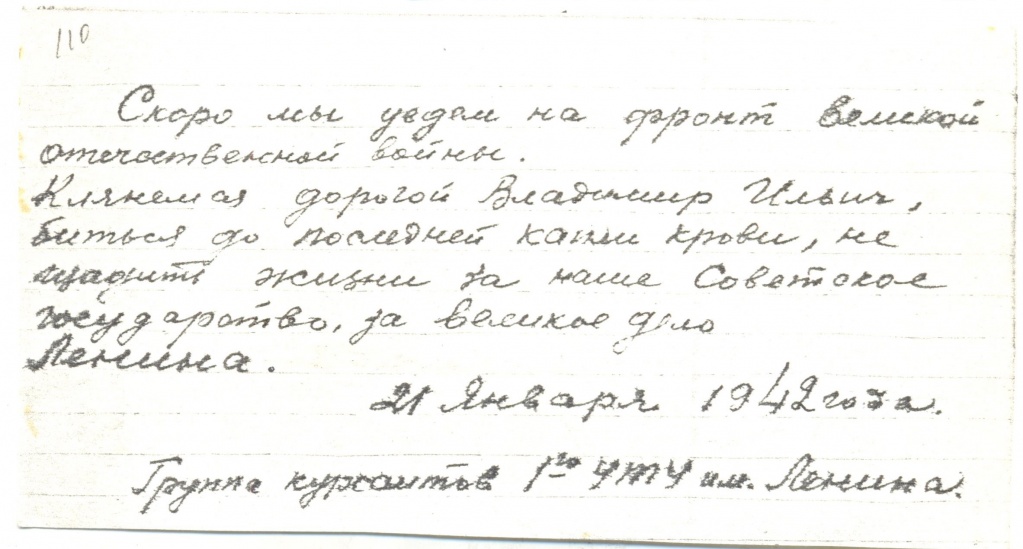 110
Скоро мы уедем на фронт великой
отечественной войны.
Клянемся дорогой Владимир Ильич,
биться до последней капли крови, не
щадить жизни за наше Советское
государство, за великое дело
Ленина.
21 Января 1942 года.
Группа курсантов 1го УТУ им. Ленина.